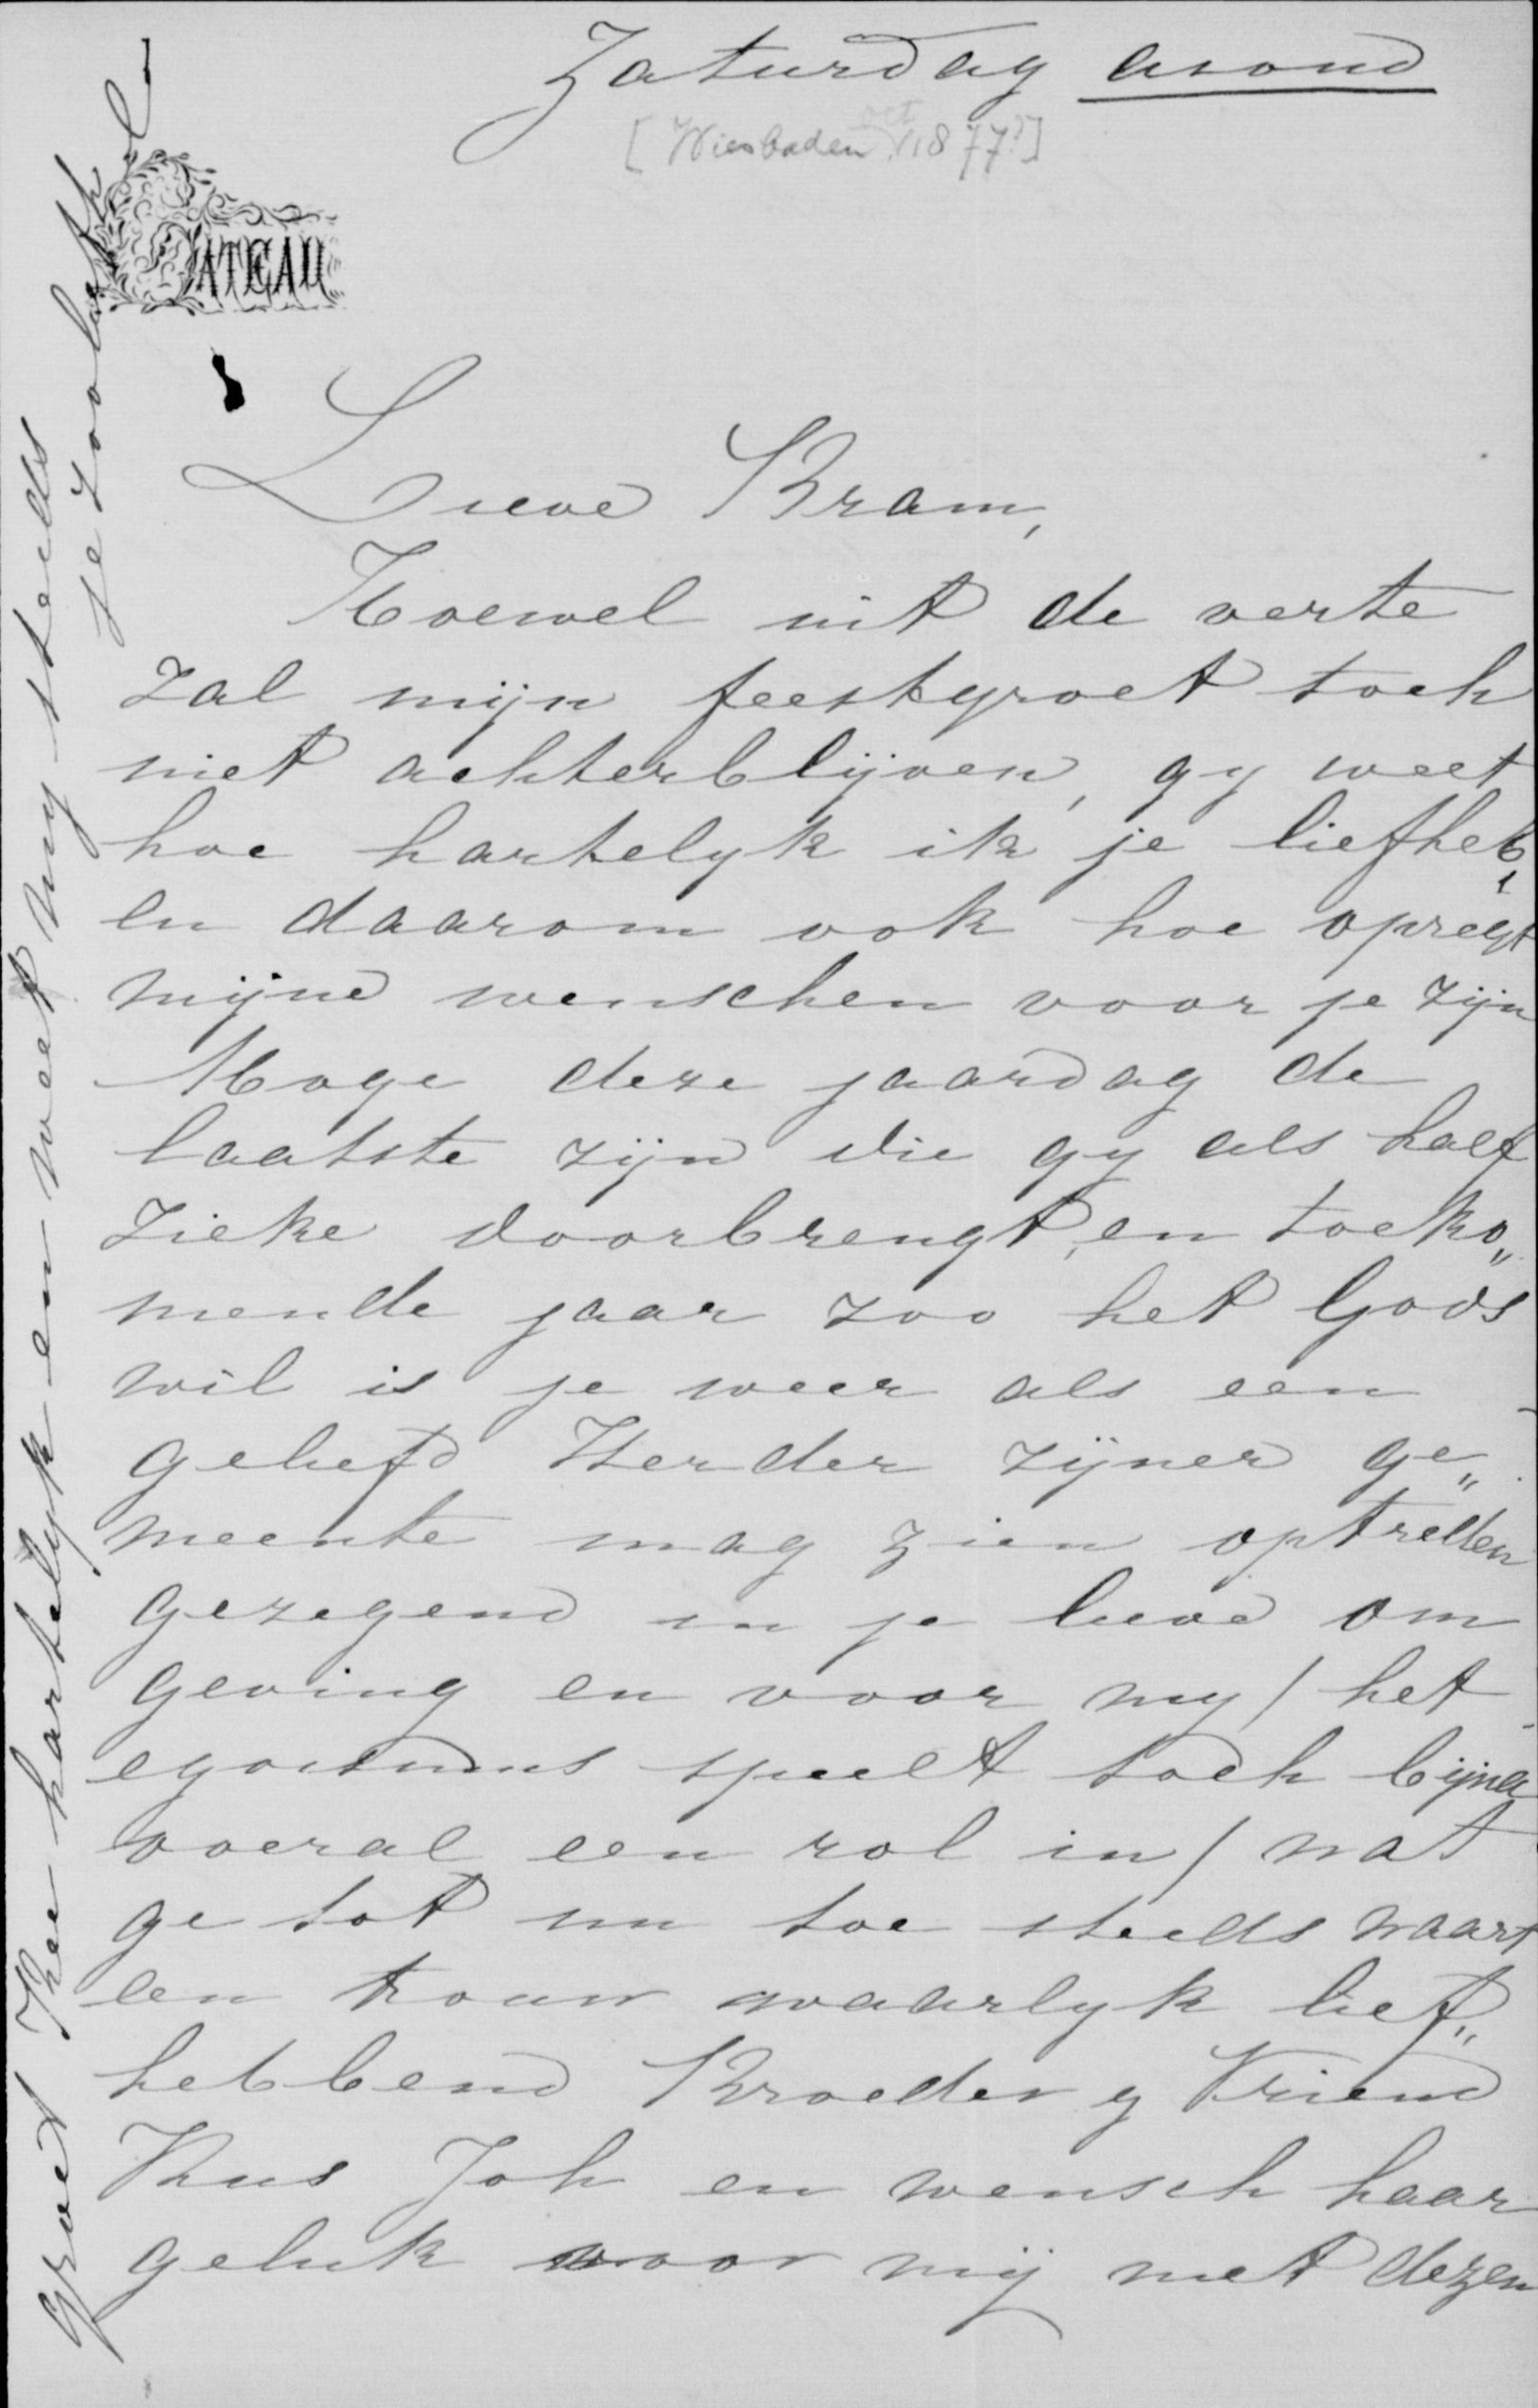 Zaturdag avond
[Wiesbaden oct 1877?]
BATEAU
Lieve Bram,
Hoewel uit de verte
zal mijn feestgroet toch
niet achterblijven, gy weet
hoe hartelyk ik je liefheb,
en daarom ook hoe opregt
mijne wenschen voor je zijn
Moge deze jaardag de
laatste zijn die gy als half
zieke doorbrengt, en toeko„
mende jaar zoo het Gods
wil is je weer als een
geliefd Herder zijner ge„
meente mag zien optreden
gezegend in je lieve om
geving en voor my / het
egoismus speelt toch bijna
overal een rol in / wat
ge tot nu toe steeds waart
een trouw waarlyk lief„
hebbend Broeder y Vriend
Kus Joh en wensch haar
geluk voor mij met dezen
groet Thee hartelyk en weet my steeds
je